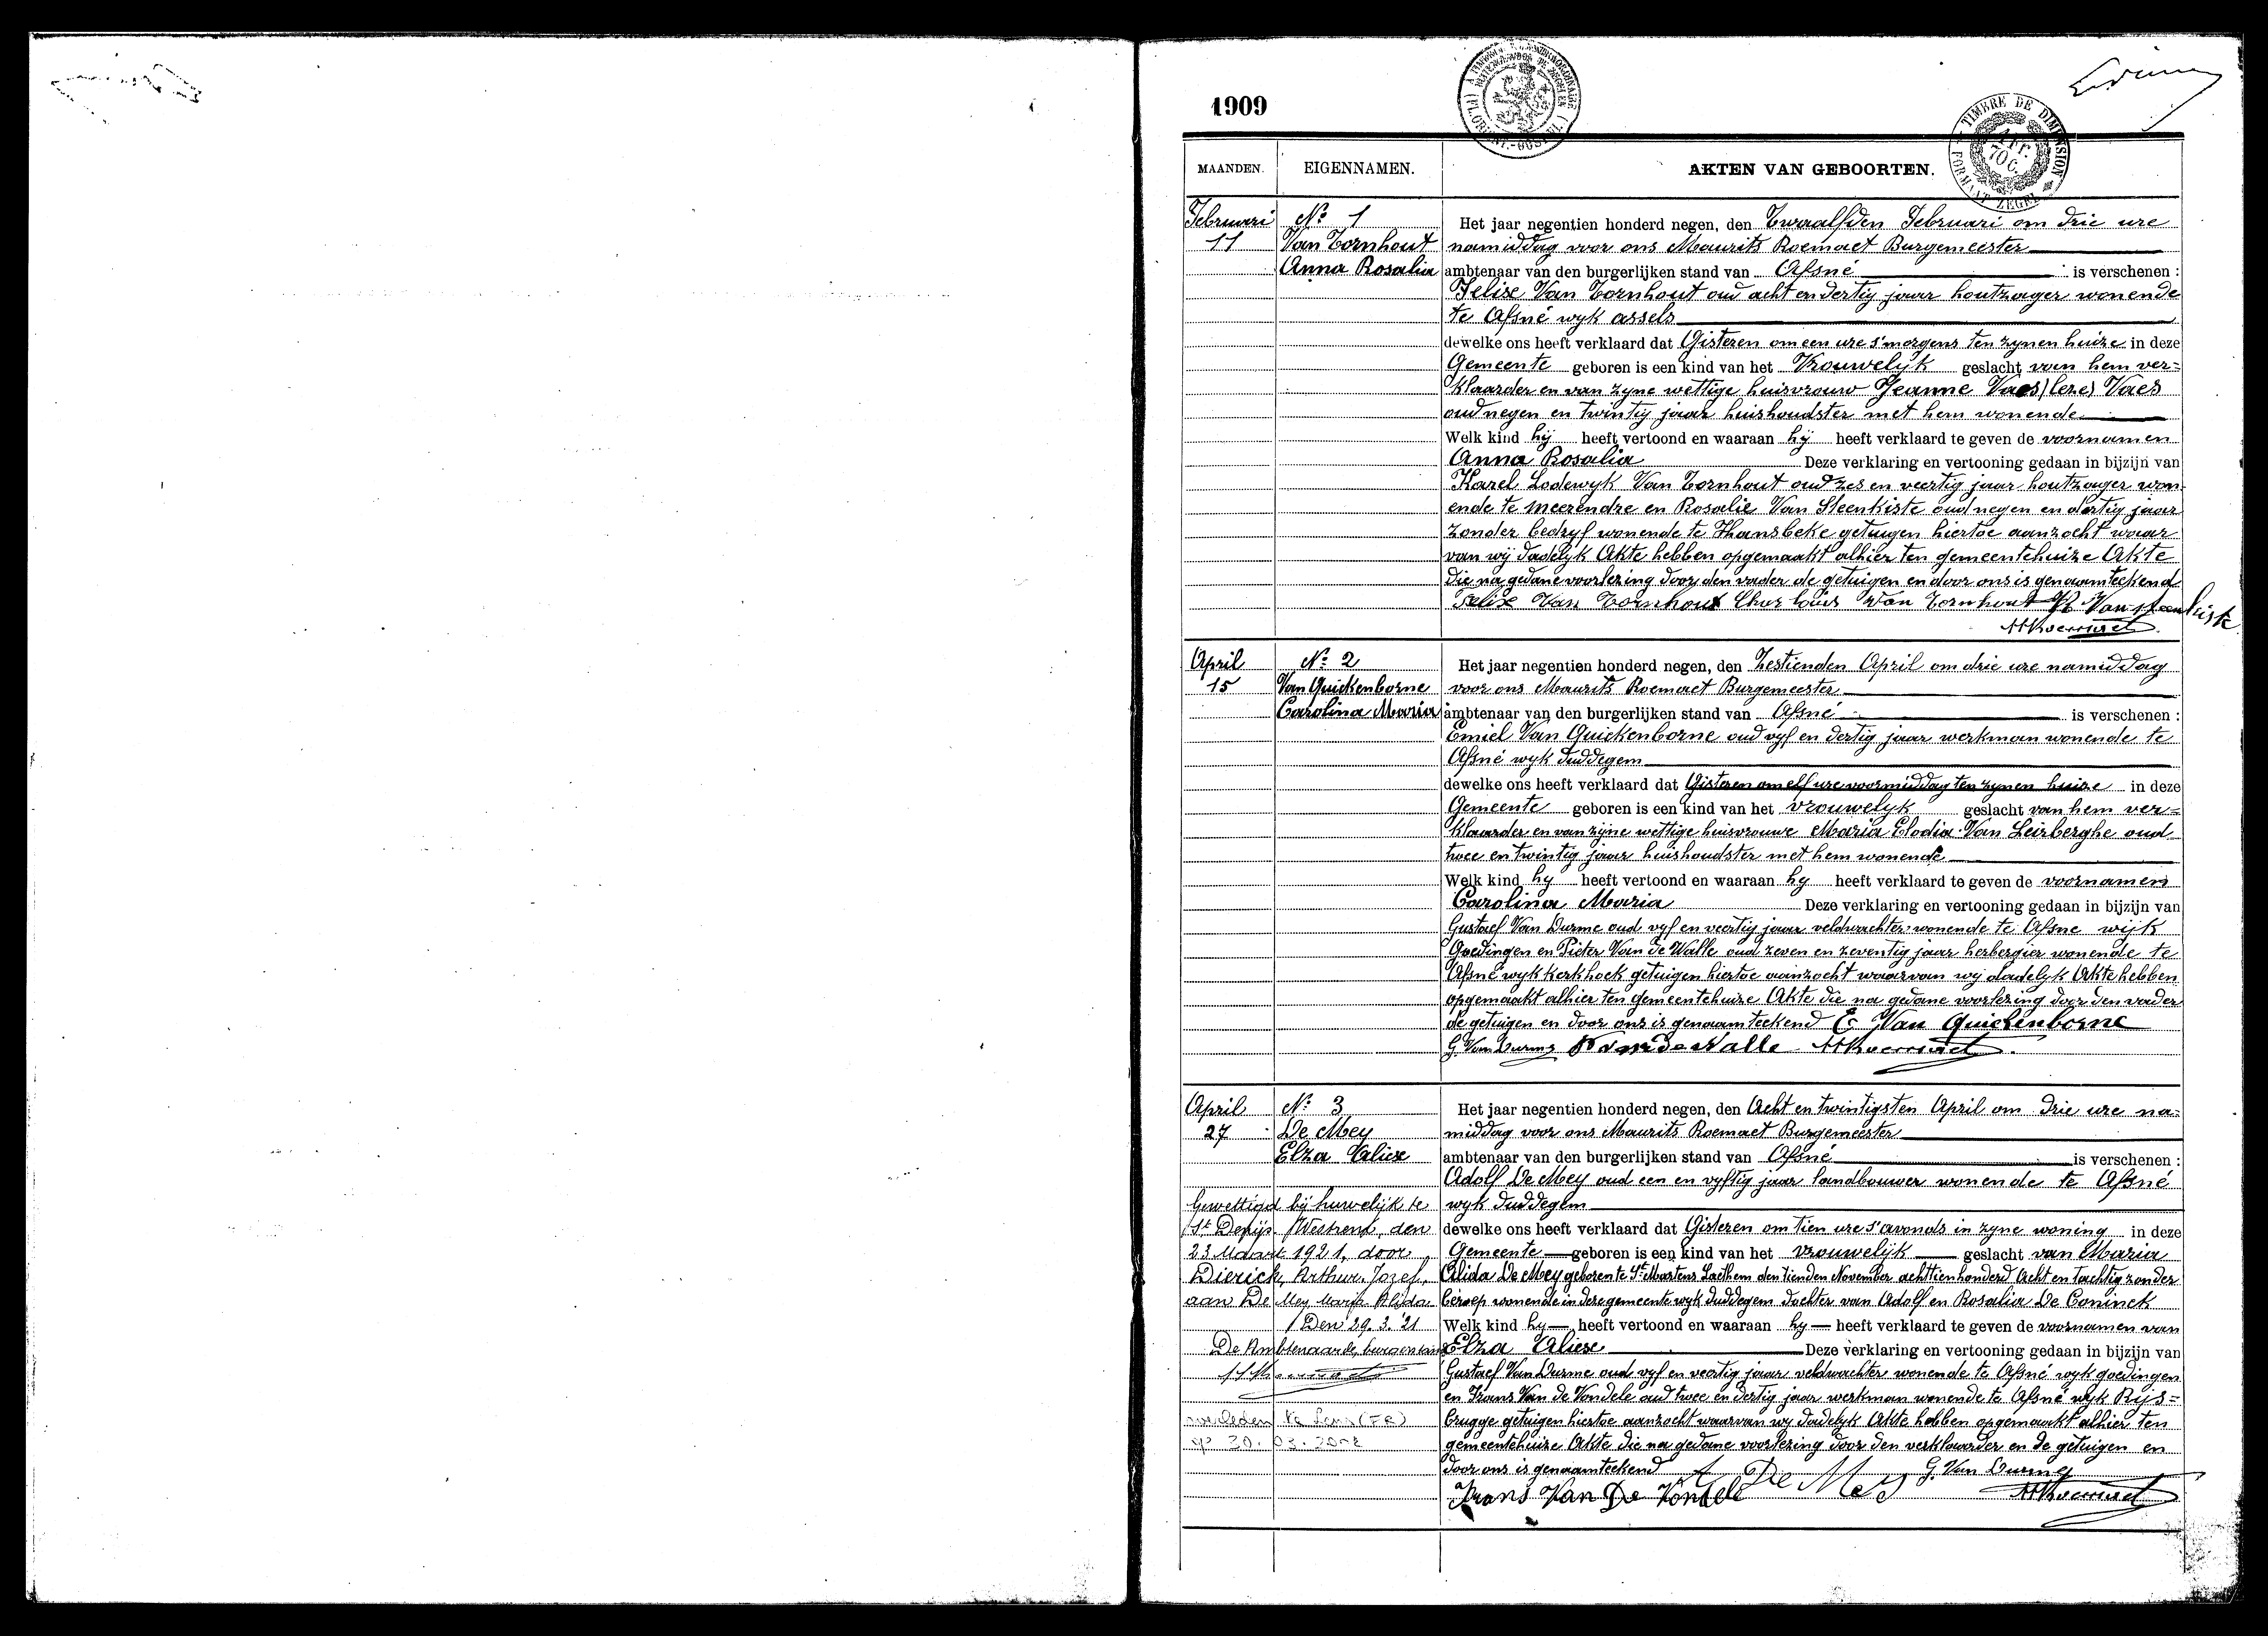 1909
MAANDEN. EIGENNAMEN. AKTEN VAN GEBOORTEN.
TIMBRE DE DIMENSION
FORMAAT ZEGEL
Februari
11
No 1
Van Tornhout
Anna Rosalia
Het jaar negentien honderd negen, den Twaalfden Februari om drie ure
namiddag voor ons Maurits Roemaet Burgemeester
ambtenaar van den burgerlijken stand van Afsné is verschenen :
Felix Van Tornhout oud acht en dertig jaar houtzager wonende
te Afsné wyk assels
dewelke ons heeft verklaard dat Gisteren om een ure s'morgens ten zynen huize in deze
Gemeente geboren is een kind van het Vrouwelyk geslacht van hem ver=
klaarder en van zyne wettige huisvrouw Jeanne Vaes (lees) Vaes
oud negen en twintig jaar huishoudster met hem wonende
Welk kind hij heeft vertoond en waaraan hij heeft verklaard te geven de voornamen
Anna Rosalia Deze verklaring en vertooning gedaan in bijzijn van
Karel Lodewyk Van Tornhout oud zes en veertig jaar houtzager won
ende te Meerendre en Rosalie Van Steenkiste oud negen en dertig jaar
zonder bedryf wonende te Hansbeke getuigen hiertoe aanzocht waar
van wij dadelyk Akte hebben opgemaakt alhier ten gemeentehuize Akte
die na gedane voorlezing door den vader de getuigen en door ons is genaamteekend
Felix Van Tornhout Char Louis Van Tornhout R Van steenkiste
MRoemaet
April
15
No 2
Van Quickenborne
Carolina Maria
Het jaar negentien honderd negen, den Zestienden April om drie ure namiddag
voor ons Maurits Roemaet Burgemeester
ambtenaar van den burgerlijken stand van Afsné is verschenen :
Emiel Van Quickenborne oud vyf en dertig jaar werkman wonende te
Afsné wyk Duddegem
dewelke ons heeft verklaard dat Gisteren om elf ure voormiddag ten zynen huize in deze
Gemeente geboren is een kind van het vrouwelyk geslacht van hem ver=
klaarder en van zijne wettige huisvrouwe Maria Elodia Van Leirberghe oud
twee en twintig jaar huishoudster met hem wonende
Welk kind hy heeft vertoond en waaraan hy heeft verklaard te geven de voornamen
Carolina Maria Deze verklaring en vertooning gedaan in bijzijn van
Gustaef Van Durme oud vyf en veertig jaar veldwachter wonende te Afsne wijk
Goedingen en Pieter Van de Walle oud zeven en zeventig jaar herbergier wonende te
Afsné wyk kerkhoek getuigen hiertoe aanzocht waarvan wij dadelyk Akte hebben
opgemaakt alhier ten gemeentehuize Akte die na gedane voorlezing door den vader
de getuigen en door ons is genaamteekend E Van Quickenborne
G. Van Durme P Van de Walle MRoemaet
April
27
No 3
De Mey
Elza Aliese
Het jaar negentien honderd negen, den Acht en twintigsten April om drie ure na=
middag voor ons Maurits Roemaet Burgemeester
ambtenaar van den burgerlijken stand van Afsné is verschenen :
Adolf De Mey oud een en vyftig jaar landbouwer wonende te Afsné
wyk Duddegem
dewelke ons heeft verklaard dat Gisteren om tien ure s'avonds in zyne woning in deze
Gemeente geboren is een kind van het vrouwelijk geslacht van Maria
Alida De Mey geboren te St Martens Laethem den tienden November achttienhonderd acht en tachtig zonder
beroep wonende in deze gemeente wyk Duddegem dochter van Adolf en Rosalia De Coninck
Welk kind hy heeft vertoond en waaraan hy heeft verklaard te geven de voornamen van
Elza Aliese Deze verklaring en vertooning gedaan in bijzijn van
Gustaef Van Durme oud vyf en veertig jaar veldwachter wonende te Afsné wyk goedingen
en Frans Van de Vondele oud twee en dertig jaar werkman wonende te Afsné wyk Rijs=
brugge getuigen hiertoe aanzocht waarvan wy dadelyk Akte hebben opgemaakt alhier ten
gemeentehuize Akte die na gedane voorlezing door den verklaarder en de getuigen en
door ons is genaamteekend A De Mey G. Van Durme
Frans Van De Vondele MRoemaet
Gewettigd bij huwelijk te
St Denijs Westrem, den
23 Maart 1921, door
Dierick, Arthur, Jozef,
aan De Mey Maria Alida
Den 29. 3. '21
De Ambtenaar des burgerstand
MRoemaet
overleden te Lens (FR)
op 30. 03. 2002